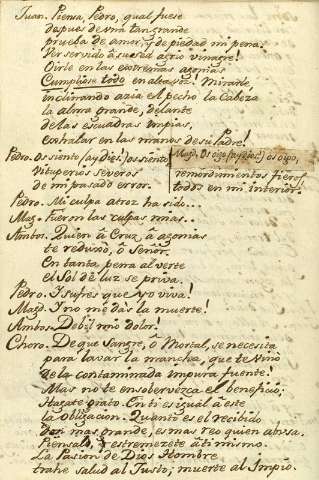 Juan. Piensa, Pedro, qual fuese
despues de una tan grande
prueba de amor, y de piedad mi pena.
Ver servido a su sed el agrio vinagre!
Oirle en las extremas agonias
Cumpliose todo en alta voz! Mirarle
inclinando azia el pecho la Cabeza
la alma grande, delante
de las escuadras impias,
exhalar en las manos de su Padre!
Pedro. Os siento (ay dixe!) os siento
vituperios severos
de mi pasado error.
Magd. Os oigo (ay ) os oigo,
remordimientos fieros
todos en mi interior.
Pedro. Mi culpa atroz ha sido..
Mag. Fueron las culpas mias..
Ambos. Quien â Cruz, â agonias
te reduxo, ô Señor.
En tanta pena al verte
el Sol de luz se priva.
Pedro. I sufres que yo viva!
Magd. I no me dàs la muerte!
Ambos. Debil mio dolor!
Choro. De que Sangre, ô Mortal, se necesita
para lavar la mancha, que te vino
de la contaminada impura fuente!
Mas no te ensobervezca el beneficio:
Hagate grato. En ti es igual â este
la Obligacion. Quanto es el recibido
don mas grande, es mas reo quien abusa.
Piensalo, y estremezete âti mismo.
La Pasion de Dios Hombre
trahe salud al Justo; muerte al Impio.